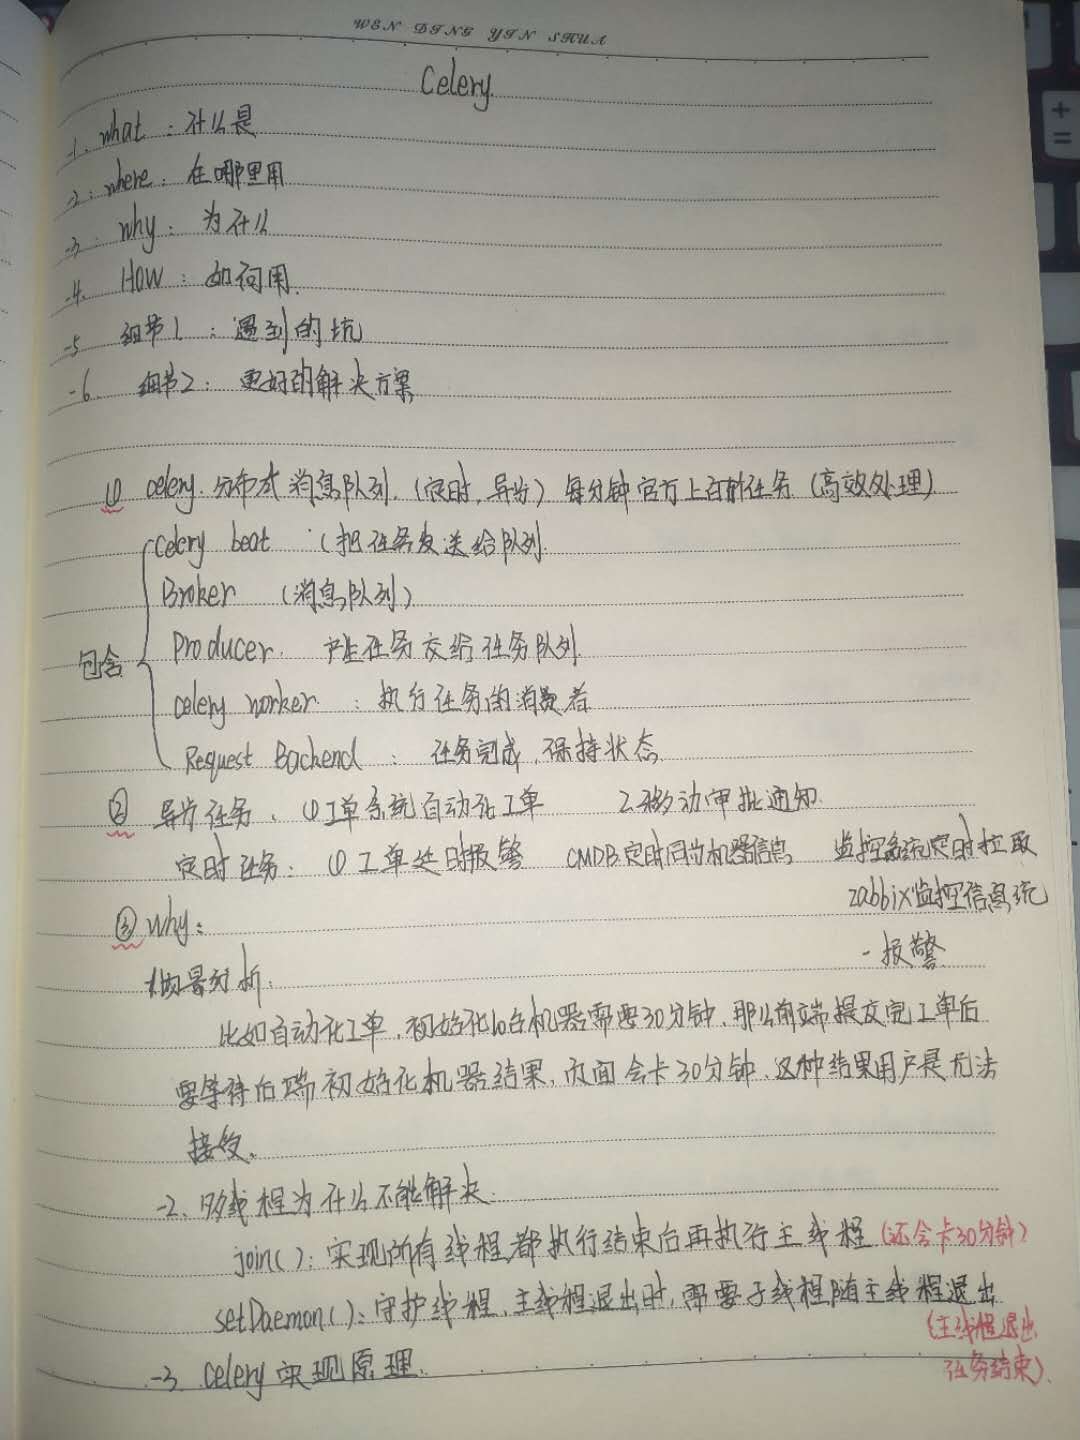 WEN DING YIN SHUA
Celery.
-1. what : 什么是
-2. where : 在哪里用
-3. why : 为什么
-4. HOW : 如何用.
-5 细节1 : 遇到的坑
-6. 细节2: 更好的解决方案
① celery. 分布式 消息队列. (定时, 异步) 每分钟 官方上百万任务 (高效处理)
包含
celery beat : (把任务发送给队列.
Broker (消息队列)
Producer. 产生任务交给任务队列.
celery worker. : 执行任务的消费者
Request Backend : 任务完成, 保持状态.
② 异步任务、 ①工单系统自动化工单 2.移动审批通知.
定时任务: ①工单延时报警 CMDB定时同步机器信息 监控系统定时拉取
zabbix监控信息统
- 报警
③ why:
1场景分析:
比如自动化工单, 初始化10台机器需要30分钟, 那么前端提交完工单后
要等待后端初始化机器结果, 页面会卡30分钟. 这种结果用户是无法
接受。
-2、多线程为什么不能解决:
join(): 实现所有线程都执行结束后再执行主线程 (还会卡30分钟)
setDaemon(): 守护线程, 主线程退出时, 需要子线程随主线程退出
(主线程退出
任务结束).
-3. celery实现原理.